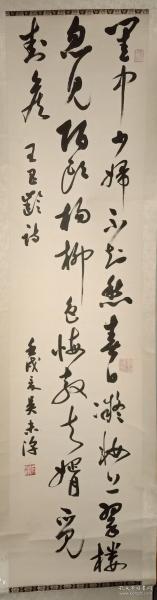 閨中少婦不知愁春日凝妝上翠樓
忽見陌頭楊柳色悔教夫婿覓
封侯 王昌齡詩
壬戌夏吴未淳